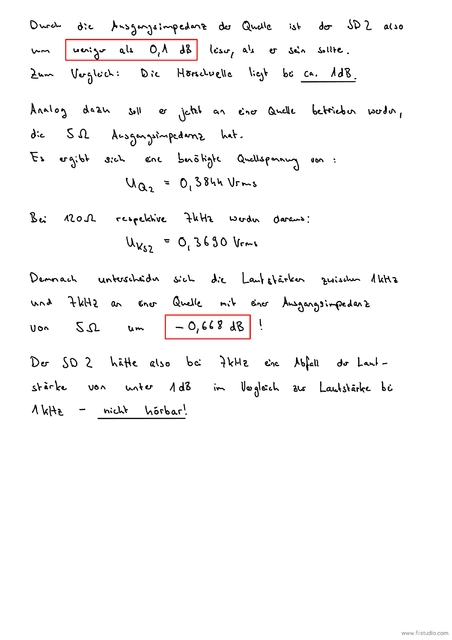 Durch die Ausgangsimpedanz der Quelle ist der SD2 also
um weniger als 0,1 dB leiser, als er sein sollte.
Zum Vergleich: Die Hörschwelle liegt bei ca. 1dB.
Analog dazu soll er jetzt an einer Quelle betrieben werden,
die 5Ω Ausgangsimpedanz hat.
Es ergibt sich eine benötigte Quellspannung von:
UQ2 = 0,3844 Vrms
Bei 120Ω respektive 7kHz werden daraus:
UKS2 = 0,3690 Vrms
Demnach unterscheiden sich die Lautstärken zwischen 1kHz
und 7kHz an einer Quelle mit einer Ausgangsimpedanz
von 5Ω um -0,668 dB !
Der SD2 hätte also bei 7kHz eine Abfall der Laut-
stärke von unter 1dB im Vergleich zur Lautstärke bei
1kHz - nicht hörbar!
www.fiistudio.com